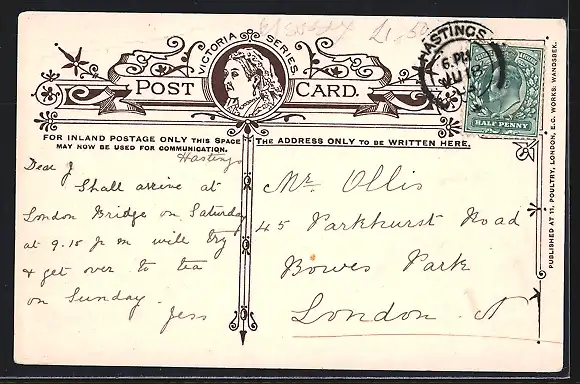 E Sussex 21,50
HASTINGS
6. PM
VICTORIA SERIES
POST CARD.
HALF PENNY
FOR INLAND POSTAGE ONLY THIS SPACE
MAY NOW BE USED FOR COMMUNICATION.
THE ADDRESS ONLY TO BE WRITTEN HERE.
Hastings
Dear J
Shall arrive at
London Bridge on Saturday
at 9.15 p m will try
& get over to tea
on Sunday.
Jess
Mr. Ollis
45 Parkhurst Road
Bowes Park
London. N
PUBLISHED AT 11, POULTRY, LONDON, E.C. WORKS: WANDSBEK.